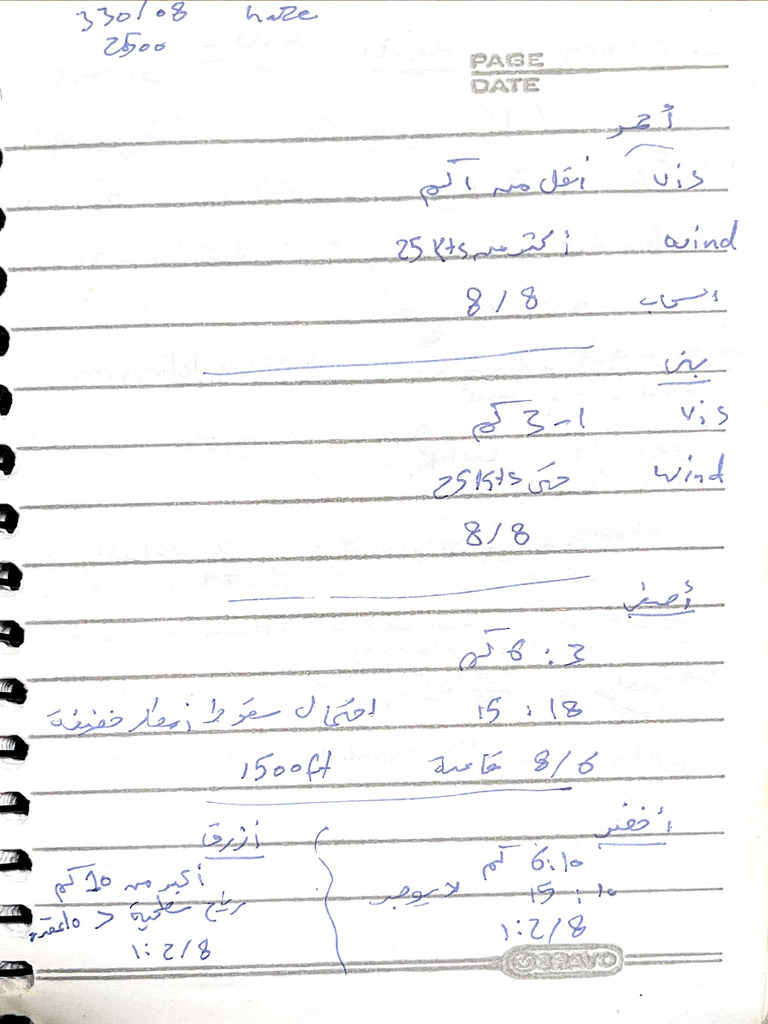 330/08 haze
2500
PAGE
DATE
أحمر
vis أقل من 1 كم
wind أكثر من 25 Kts
السحب 8/8
بني
vis 1-3 كم
wind حتى 25 Kts
8/8
أصفر
3 : 6 كم
18 : 15 احتمال سقوط أمطار خفيفة
8/6 قاعدة 1500ft
أخضر
6:10 كم
10 : 15 لا يوجد
1:2/8
أزرق
أكبر من 10 كم
رياح سطحية < 10 عقدة
1:2/8